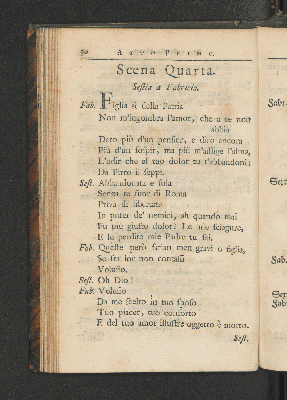 30 Atto Primo.
Scena Quarta.
Sestia a Fabrizio.
Fab. Figlia sì della Patria
Non m'ingombra l'amor, che a te non
abbia
Dato più d'un pensier, e dirò ancora
Più d'un sospir, ma più m'afflige l'alma,
L'udir che al tuo dolor tu t'abbandoni;
Da Pirro il seppi.
Sest. Abbandonata e sola
Senza te fuor di Roma
Priva di libertate
In poter de' nemici, ah quando mai
Fu più giusto dolor? Le mie sciagure,
E le perdite mie Padre tu sai,
Fab. Quelle però serian men gravi o figlia,
Se fra lor non contassi
Volusio.
Sest. Oh Dio!
Fab. Volusio
Da me scelto in tuo sposo
Tuo piacer, tuo conforto
E del tuo amor illustre oggetto è morto.
Sest.
Fabr.
Sest
Fab.
Sest
Fabr